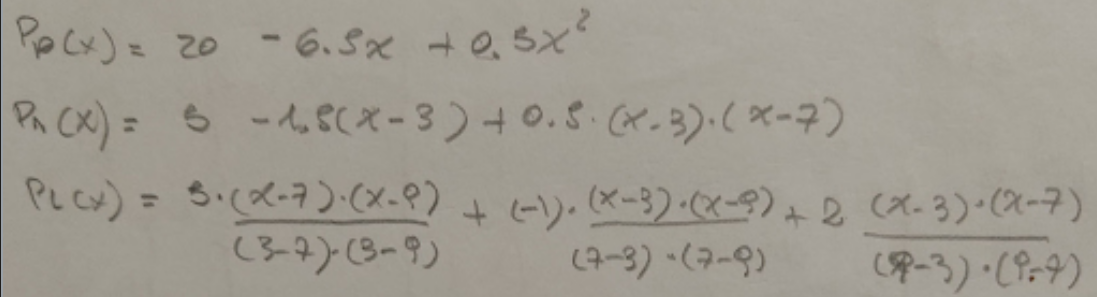 Pp(x) = 20 - 6.5x + 0.5x²
Pn(x) = 5 - 1.5(x-3) + 0.5·(x-3)·(x-7)
PL(x) = 5·(x-7)·(x-9)/(3-7)·(3-9) + (-1)·(x-3)·(x-9)/(7-3)·(7-9) + 2 (x-3)·(x-7)/(9-3)·(9-7)